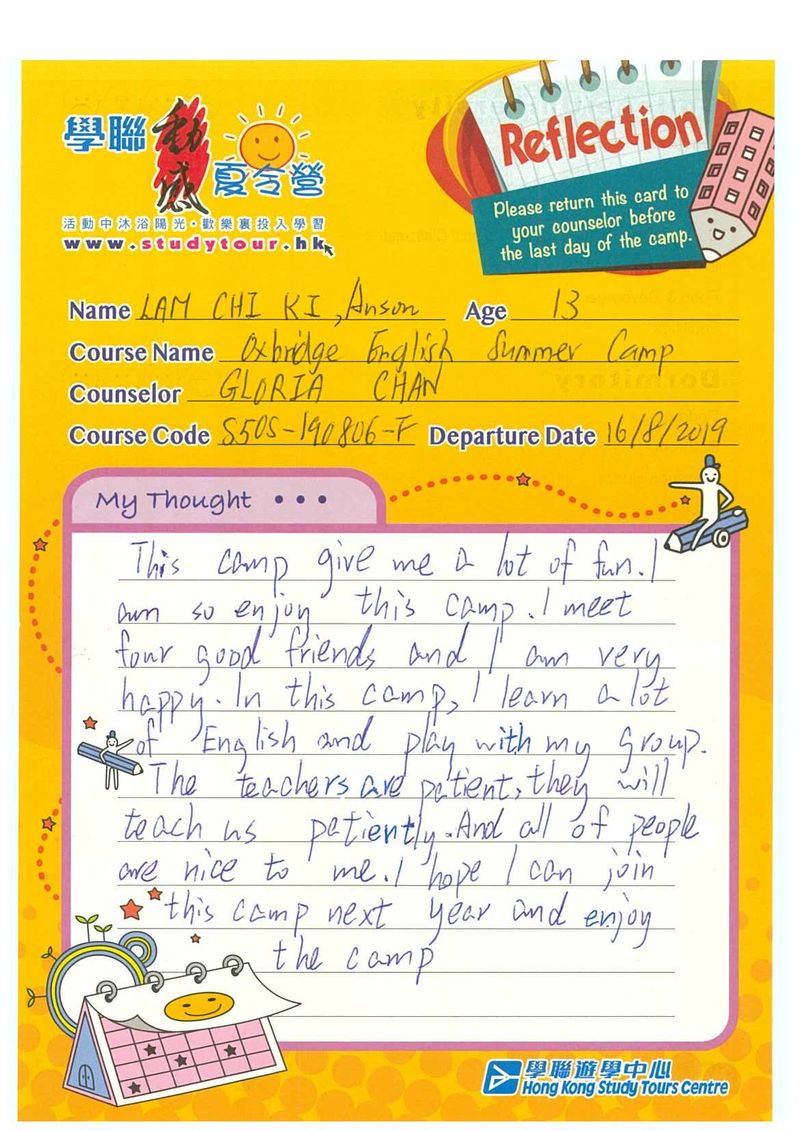 學聯 動感 夏令營
活動中沐浴陽光·歡樂裏投入學習
www.studytour.hk
Reflection
Please return this card to
your counselor before
the last day of the camp.
Name LAM CHI KI, Anson Age 13
Course Name Oxbridge English Summer Camp
Counselor GLORIA CHAN
Course Code S50S-190806-F Departure Date 16/8/2019
My Thought • • •
This camp give me a lot of fun. I
am so enjoy this camp. I meet
four good friends and I am very
happy. In this camp, I learn a lot
of English and play with my group.
The teachers are patient, they will
teach us patiently. And all of people
are nice to me. I hope I can join
this camp next year and enjoy
the camp
學聯遊學中心
Hong Kong Study Tours Centre